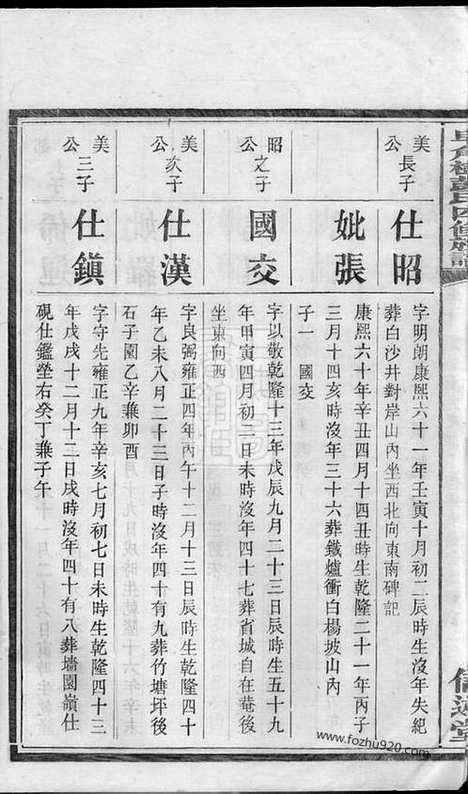 美公長子
仕昭
字明朗康熙六十一年壬寅十月初二辰時生沒年失紀
葬白沙井對岸山內坐西北向東南碑記
妣張
康熙六十年辛丑四月十四丑時生乾隆二十一年丙子
三月十四亥時沒年三十六葬鐵爐衝白楊坡山內
子一 國交
昭公之子
國交
字以敬乾隆十三年戊辰九月二十三日辰時生五十九
年甲寅四月初二日未時沒年四十七葬省城自在菴後
坐東向西
美公次子
仕漢
字良弼雍正四年丙午十二月十三日辰時生乾隆四十
年乙未八月二十三日子時沒年四十有九葬竹塘坪後
石子園乙辛兼卯酉
美公三子
仕鎮
字守先雍正九年辛亥七月初七日未時生乾隆四十三
年戊戌十二月十二日戌時沒年四十有八葬墻園嶺仕
硯仕鑑塋右癸丁兼子午
http://www.fozhu920.com